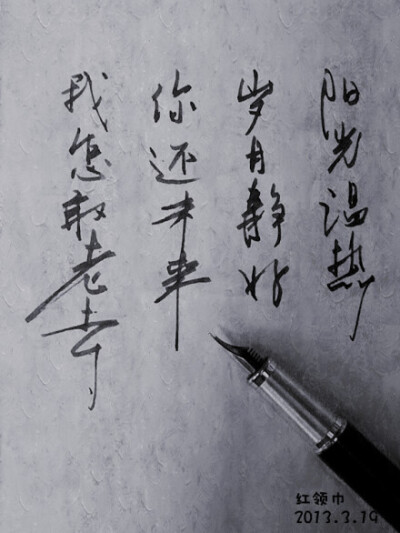 阳光温热
岁月静好
你还未来
我怎敢老去
红领巾
2013.3.19